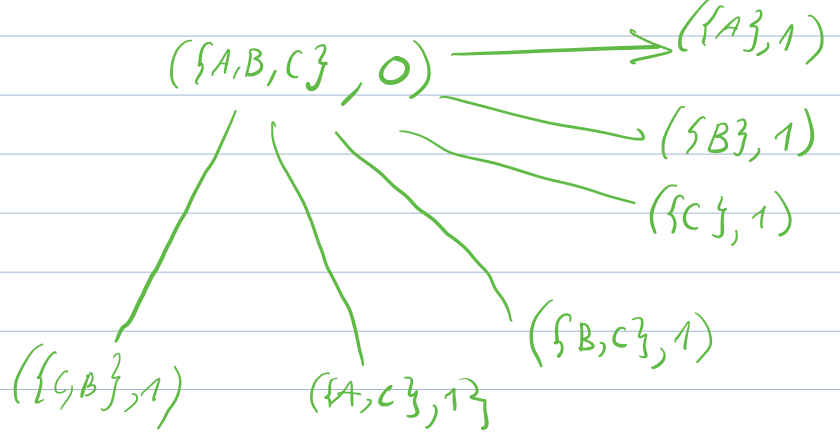 ({A,B,C}, 0)
({A},1)
({B},1)
({C},1)
({B,C},1)
({C,B},1)
({A,C},1}